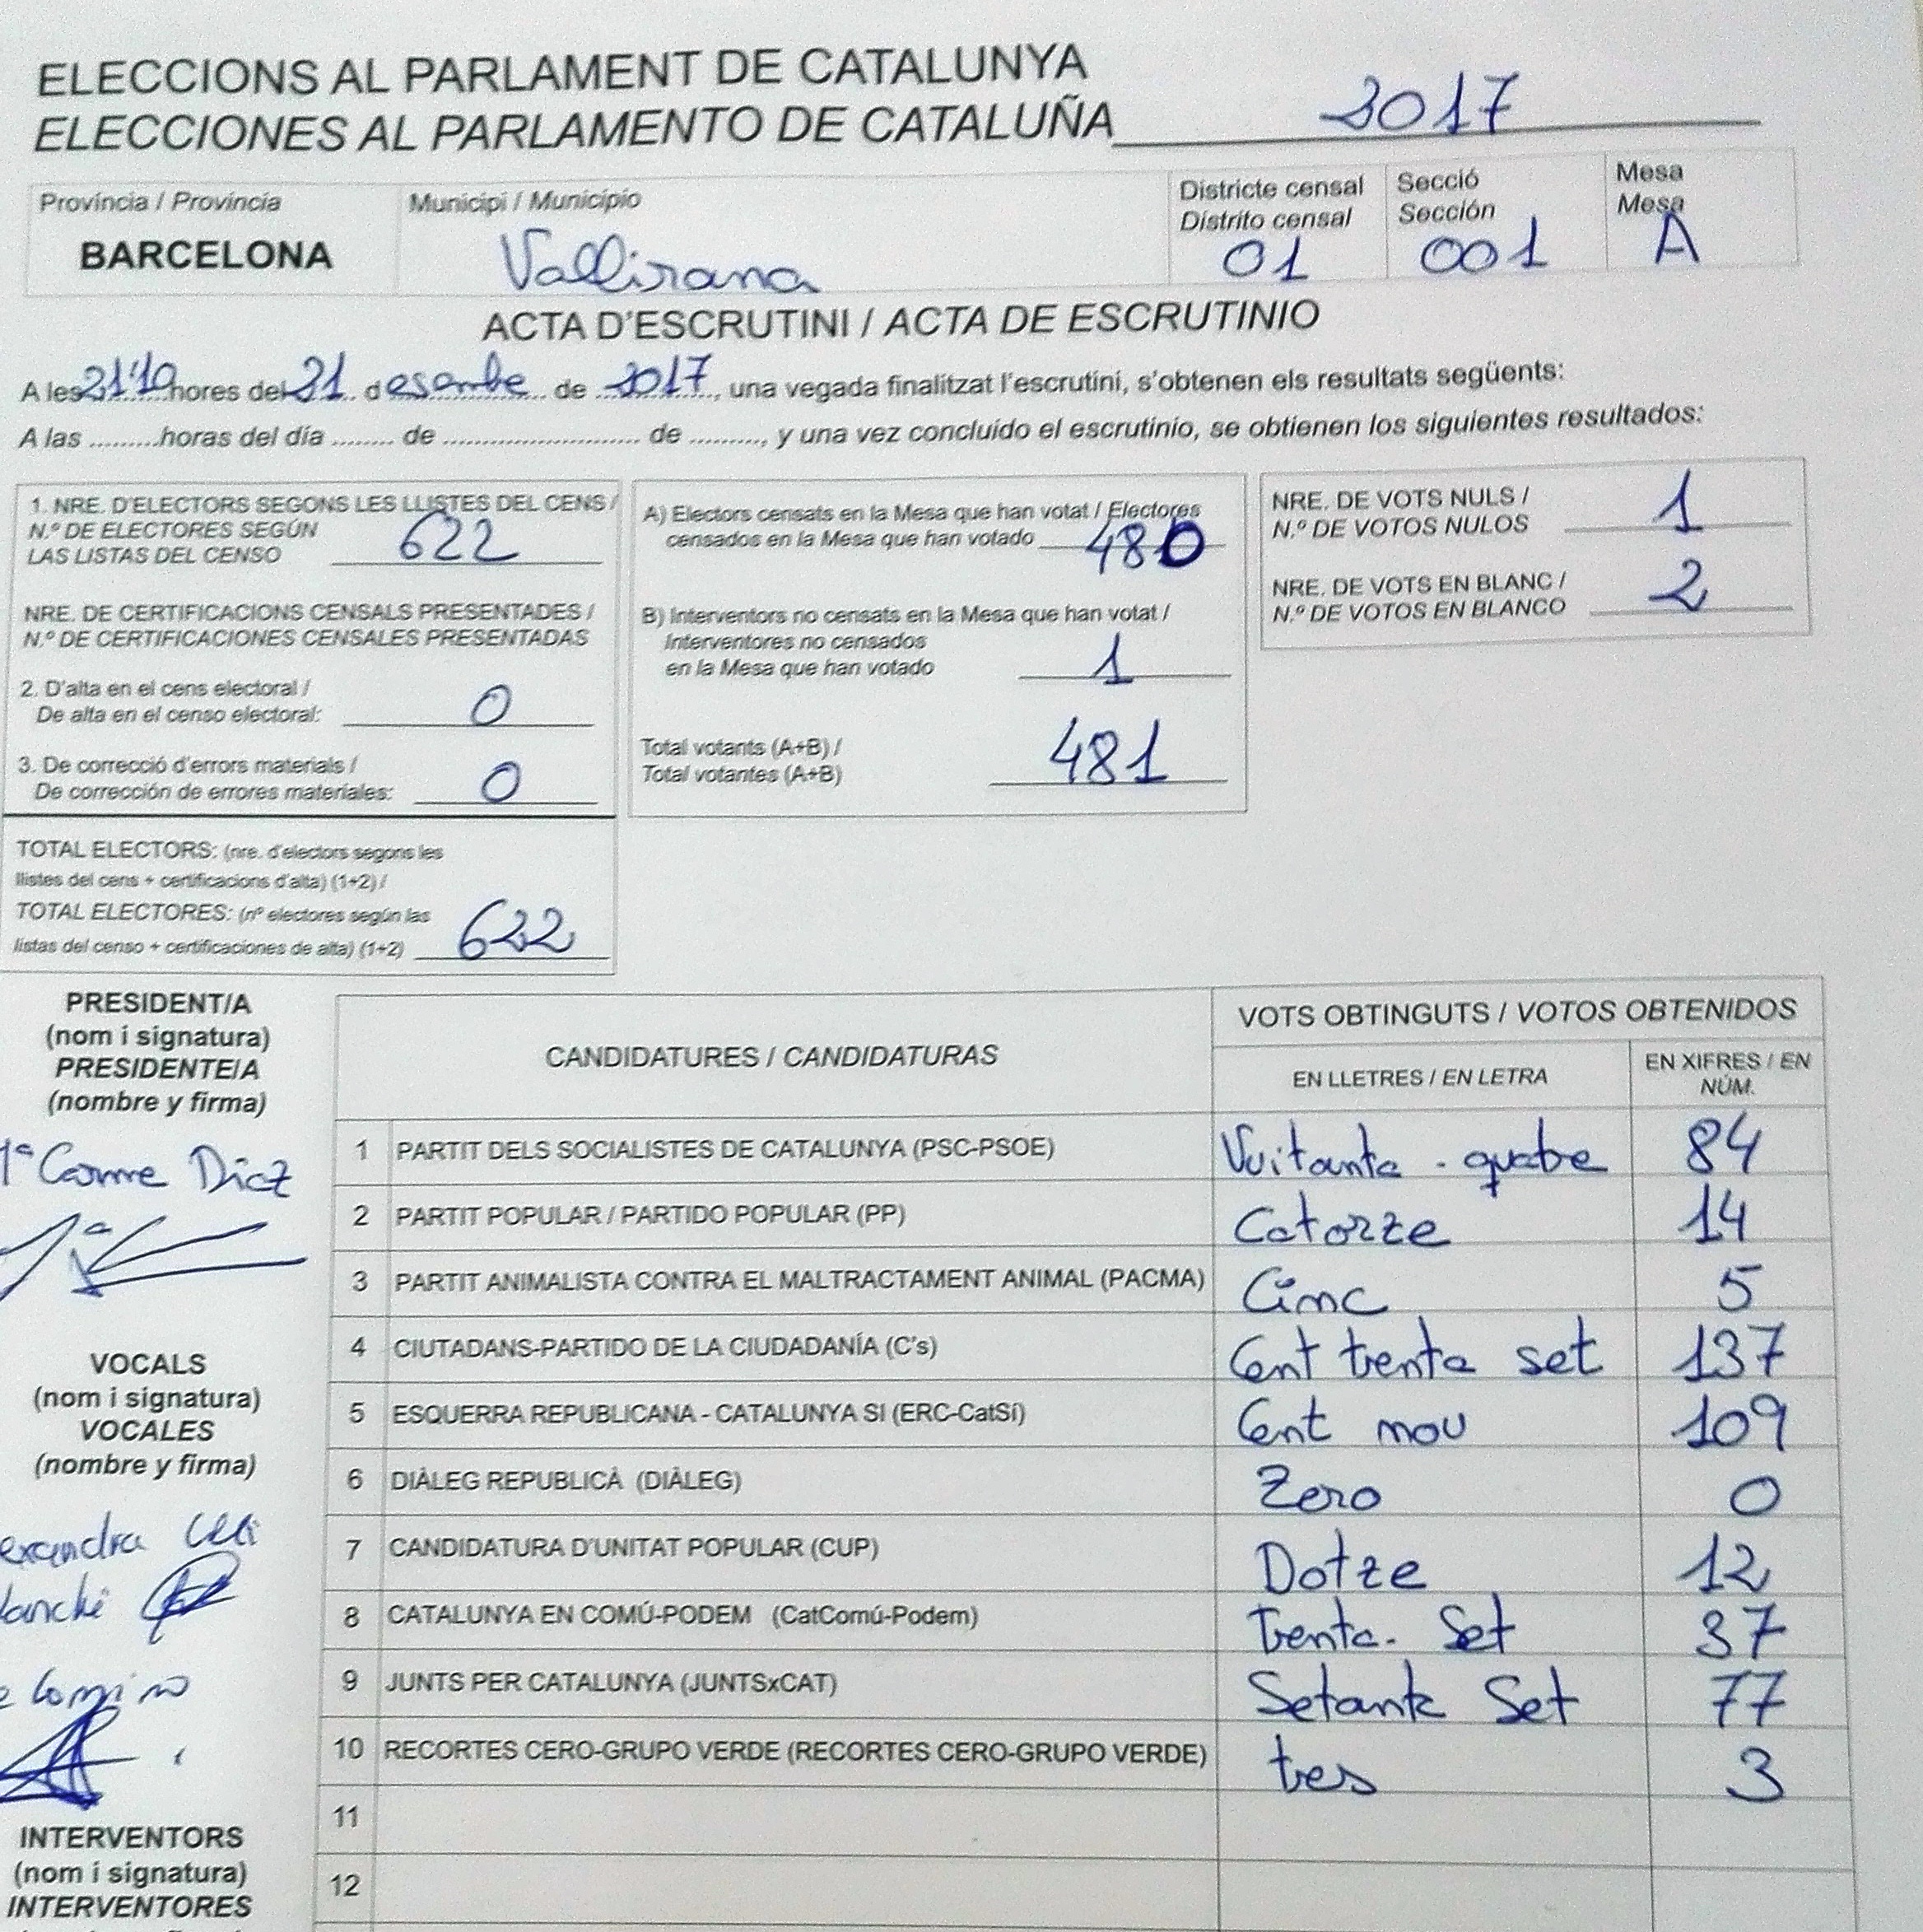 ELECCIONS AL PARLAMENT DE CATALUNYA
ELECCIONES AL PARLAMENTO DE CATALUÑA 2017
Província / Provincia
BARCELONA
Municipi / Municipio
Vallirana
Districte censal
Distrito censal
01
Secció
Sección
001
Mesa
Mesa
A
ACTA D'ESCRUTINI / ACTA DE ESCRUTINIO
A les 21'10 hores del 21 desembre de 2017, una vegada finalitzat l'escrutini, s'obtenen els resultats següents:
A las .........horas del día ........ de .......................... de .........., y una vez concluido el escrutinio, se obtienen los siguientes resultados:
1. NRE. D'ELECTORS SEGONS LES LLISTES DEL CENS /
N.º DE ELECTORES SEGÚN
LAS LISTAS DEL CENSO 622
NRE. DE CERTIFICACIONS CENSALS PRESENTADES /
N.º DE CERTIFICACIONES CENSALES PRESENTADAS
2. D'alta en el cens electoral /
De alta en el censo electoral: 0
3. De correcció d'errors materials /
De corrección de errores materiales: 0
TOTAL ELECTORS: (nre. d'electors segons les
llistes del cens + certificacions d'alta) (1+2) /
TOTAL ELECTORES: (nº electores según las
listas del censo + certificaciones de alta) (1+2) 622
A) Electors censats en la Mesa que han votat / Electores
censados en la Mesa que han votado 480
B) Interventors no censats en la Mesa que han votat /
Interventores no censados
en la Mesa que han votado 1
Total votants (A+B) /
Total votantes (A+B) 481
NRE. DE VOTS NULS /
N.º DE VOTOS NULOS 1
NRE. DE VOTS EN BLANC /
N.º DE VOTOS EN BLANCO 2
PRESIDENT/A
(nom i signatura)
PRESIDENTE/A
(nombre y firma)
Carme Diaz
VOCALS
(nom i signatura)
VOCALES
(nombre y firma)
INTERVENTORS
(nom i signatura)
INTERVENTORES
CANDIDATURES / CANDIDATURAS
VOTS OBTINGUTS / VOTOS OBTENIDOS
EN LLETRES / EN LETRA
EN XIFRES / EN
NÚM.
1 PARTIT DELS SOCIALISTES DE CATALUNYA (PSC-PSOE) Vuitanta - quatre 84
2 PARTIT POPULAR / PARTIDO POPULAR (PP) Catorze 14
3 PARTIT ANIMALISTA CONTRA EL MALTRACTAMENT ANIMAL (PACMA) Cinc 5
4 CIUTADANS-PARTIDO DE LA CIUDADANÍA (C's) Cent trenta set 137
5 ESQUERRA REPUBLICANA - CATALUNYA SI (ERC-CatSí) Cent nou 109
6 DIÀLEG REPUBLICÀ (DIÀLEG) Zero 0
7 CANDIDATURA D'UNITAT POPULAR (CUP) Dotze 12
8 CATALUNYA EN COMÚ-PODEM (CatComú-Podem) Trenta - Set 37
9 JUNTS PER CATALUNYA (JUNTSxCAT) Setanta Set 77
10 RECORTES CERO-GRUPO VERDE (RECORTES CERO-GRUPO VERDE) tres 3
11
12